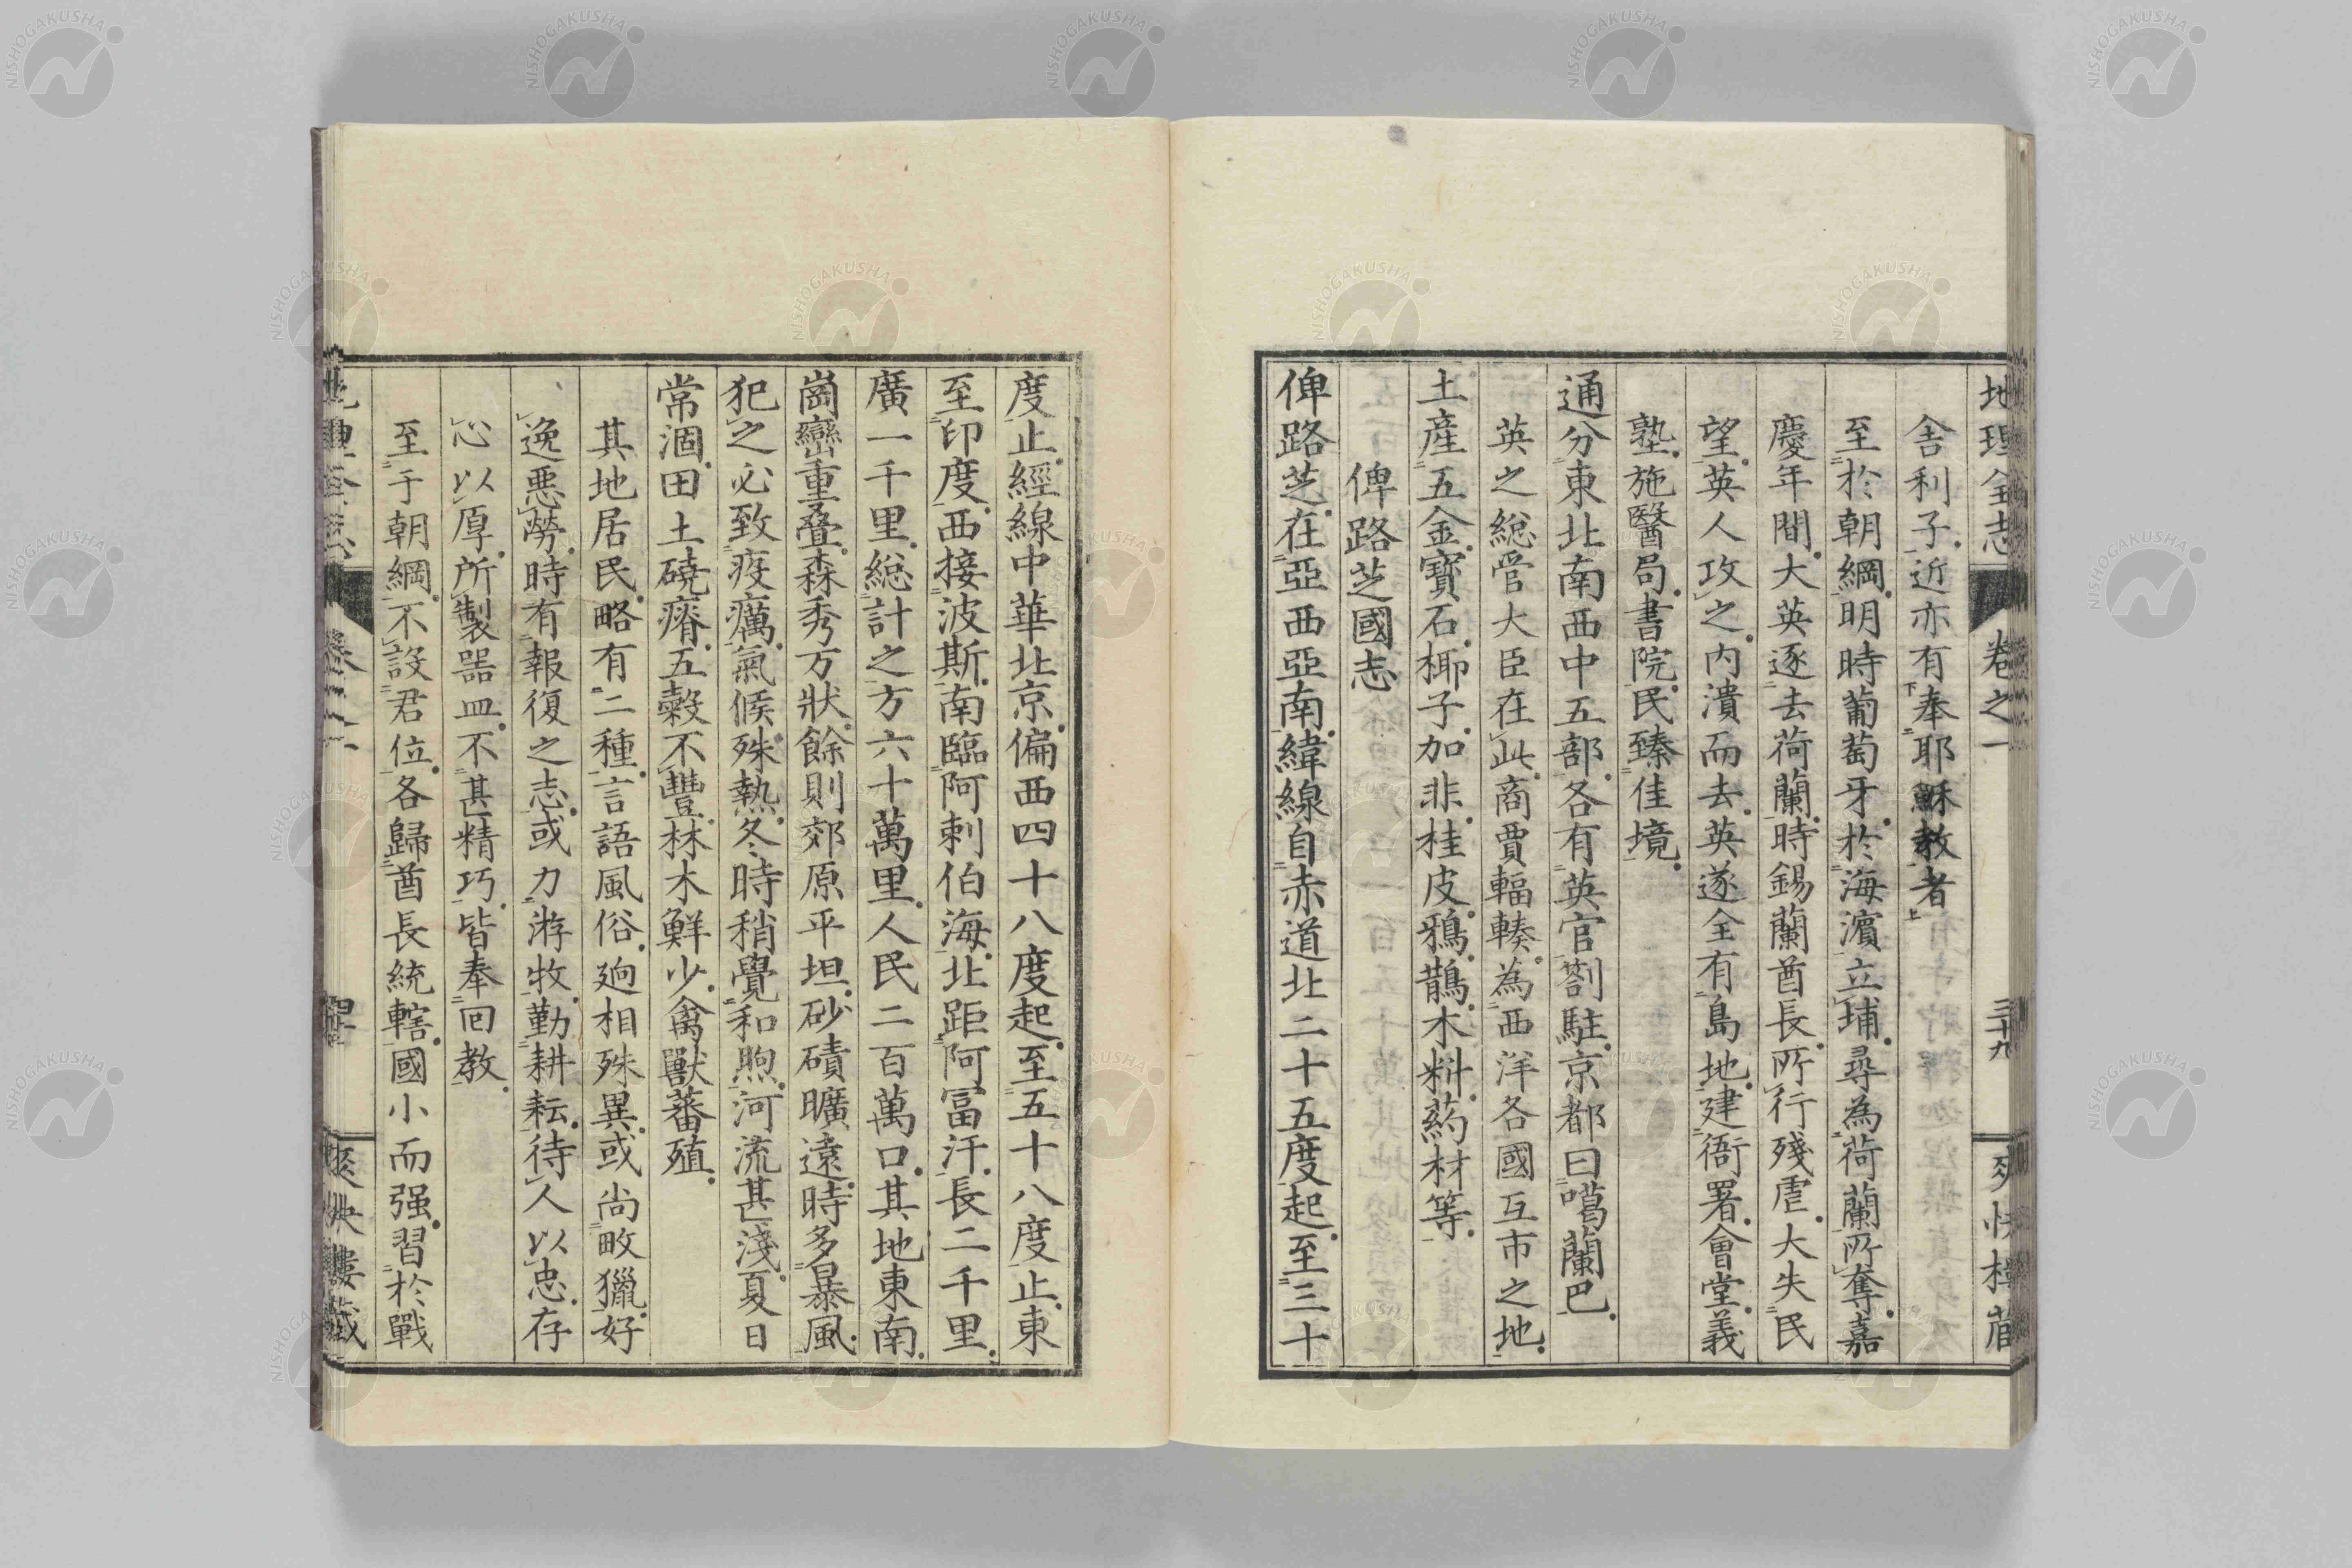 地理全志 卷之一 三十九 爽快樓藏
舎利子近亦有奉耶穌教者
至於朝綱明時葡萄牙於海濱立埔尋為荷蘭所奪嘉
慶年間大英逐去荷蘭時錫蘭酋長所行殘虐大失民
望英人攻之内潰而去英遂全有島地建衙署會堂義
塾施醫局書院民臻佳境
通分東北南西中五部各有英官劄駐京都曰噶蘭巴
英之總管大臣在此商賈輻輳為西洋各國互市之地
土產五金寶石椰子加非桂皮鴉鵲木料葯材等
俾路芝國志
俾路芝在亞西亞南緯線自赤道北二十五度起至三十
度止經線中華北京偏西四十八度起至五十八度止東
至印度西接波斯南臨阿剌伯海北距阿冨汗長二千里
廣一千里總計之方六十萬里人民二百萬口其地東南
崗巒重叠森秀万狀餘則郊原平坦砂磧曠遠時多暴風
犯之必致疫癘氣候殊熱冬時稍覺和煦河流甚淺夏日
常涸田土磽瘠五穀不豐林木鮮少禽獸蕃殖
其地居民略有二種言語風俗逈相殊異或尚畋獵好
逸悪勞時有報復之志或力游牧勤耕耘待人以忠存
心以厚所製噐皿不甚精巧皆奉回教
至于朝綱不設君位各歸酋長統轄國小而强習於戰